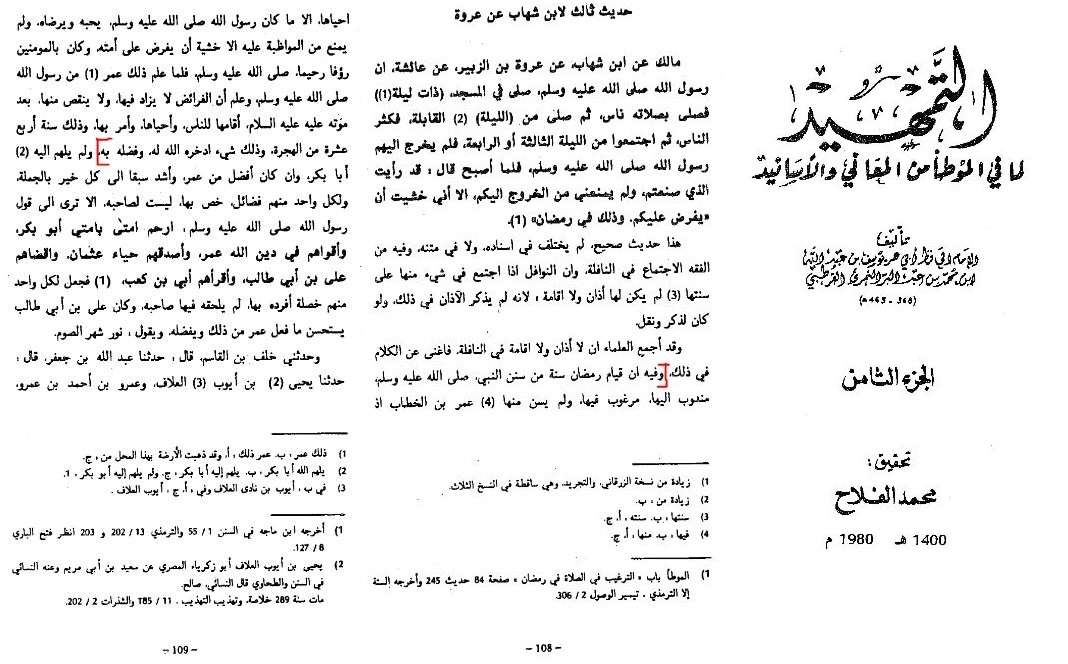 التمهيد
لما في الموطأ من المعاني والأسانيد
تأليف
الإمام أبي عمر يوسف بن عبد الله
ابن محمد بن عبد البر النمري القرطبي
(368 - 463 هـ)
الجزء الثامن
تحقيق :
محمد الفلاح
1400 هـ 1980 م
حديث ثالث لابن شهاب عن عروة
مالك عن ابن شهاب، عن عروة بن الزبير، عن عائشة، ان
رسول الله صلى الله عليه وسلم، صلى في المسجد، (ذات ليلة(1))
فصلى بصلاته ناس، ثم صلى من (الليلة) (2) القابلة، فكثر
الناس، ثم اجتمعوا من الليلة الثالثة أو الرابعة، فلم يخرج اليهم
رسول الله صلى الله عليه وسلم، فلما أصبح قال : قد رأيت
الذي صنعتم، ولم يمنعني من الخروج اليكم، الا أني خشيت أن
«يفرض عليكم، وذلك في رمضان» (1).
هذا حديث صحيح، لم يختلف في اسناده، ولا في متنه، وفيه من
الفقه الاجتماع في النافلة، وان النوافل اذا اجتمع في شيء منها على
سنتها (3) لم يكن لها أذان ولا اقامة ؛ لانه لم يذكر الآذان في ذلك، ولو
كان لذكر ونقل.
وقد أجمع العلماء ان لا أذان ولا اقامة في النافلة، فاغنى عن الكلام
في ذلك، وفيه ان قيام رمضان سنة من سنن النبي، صلى الله عليه وسلم،
مندوب اليها، مرغوب فيها، ولم يسن منها (4) عمر بن الخطاب اذ
1) زيادة من نسخة الزرقاني، والتجريد، وهي ساقطة في النسخ الثلاث.
2) زيادة من ، ب.
3) سنتها ، ب. سنته ، أ، ج.
4) فيها ، ب. منها ، أ، ج.
1) الموطأ باب « الترغيب في الصلاة في رمضان » صفحة 84 حديث 245 وأخرجه الستة
إلا الترمذي . تيسير الوصول 2 / 306.
- 108 -
احياها، الا ما كان رسول الله صلى الله عليه وسلم، يحبه ويرضاه، ولم
يمنع من المواظبة عليه الا خشية أن يفرض على أمته، وكان بالمومنين
رؤفا رحيما، صلى الله عليه وسلم، فلما علم ذلك عمر (1) من رسول الله
صلى الله عليه وسلم، وعلم أن الفرائض لا يزاد فيها، ولا ينقص منها، بعد
موته عليه عليه السلام، أقامها للناس، وأحياها، وأمر بها، وذلك سنة أربع
عشرة من الهجرة، وذلك شيء ادخره الله له، وفضله به، ولم يلهم اليه (2)
أبا بكر، وان كان أفضل من عمر، وأشد سبقا الى كل خير بالجملة،
ولكل واحد منهم فضائل، خص بها، ليست لصاحبه، الا ترى الى قول
رسول الله صلى الله عليه وسلم ، ارحم امتي بامتي أبو بكر،
وأقواهم في دين الله عمر، وأصدقهم حياء عثمان، واقضاهم
على بن أبي طالب، وأقرأهم أبي بن كعب، (1) فجعل لكل واحد
منهم خصلة أفرده بها، لم يلحقه فيها صاحبه، وكان على بن أبي طالب
يستحسن ما فعل عمر من ذلك ويفضله، ويقول ، نور شهر الصوم.
وحدثني خلف بن القاسم، قال ؛ حدثنا عبد الله بن جعفر، قال ؛
حدثنا يحيى (2) بن أيوب (3) العلاف، وعمرو بن أحمد بن عمرو،
1) ذلك عمر ، ب. عمر ذلك ، أ، وقد ذهبت الأرضة بهذا المحل من ، ج.
2) يلهم الله أبا بكر ، ب. يلهم إليه أبا بكر ، ج. ولم يلهم إليه أبو بكر ، أ.
3) في ب ، أيوب بن نادى العلاف وفي ، أ، ج ، أيوب العلاف .
1) أخرجه ابن ماجه في السنن 1 / 55 والترمذي 13 / 202 و 203 انظر فتح الباري
8 / 127.
2) يحيى بن أيوب العلاف أبو زكرياء المصري عن سعيد بن أبي مريم وعنه النسائي
في السنن والطحاوي قال النسائي، صالح.
مات سنة 289 خلاصة، وتهذيب التهذيب . 11 / 185 والشذرات 2 / 202.
- 109 -